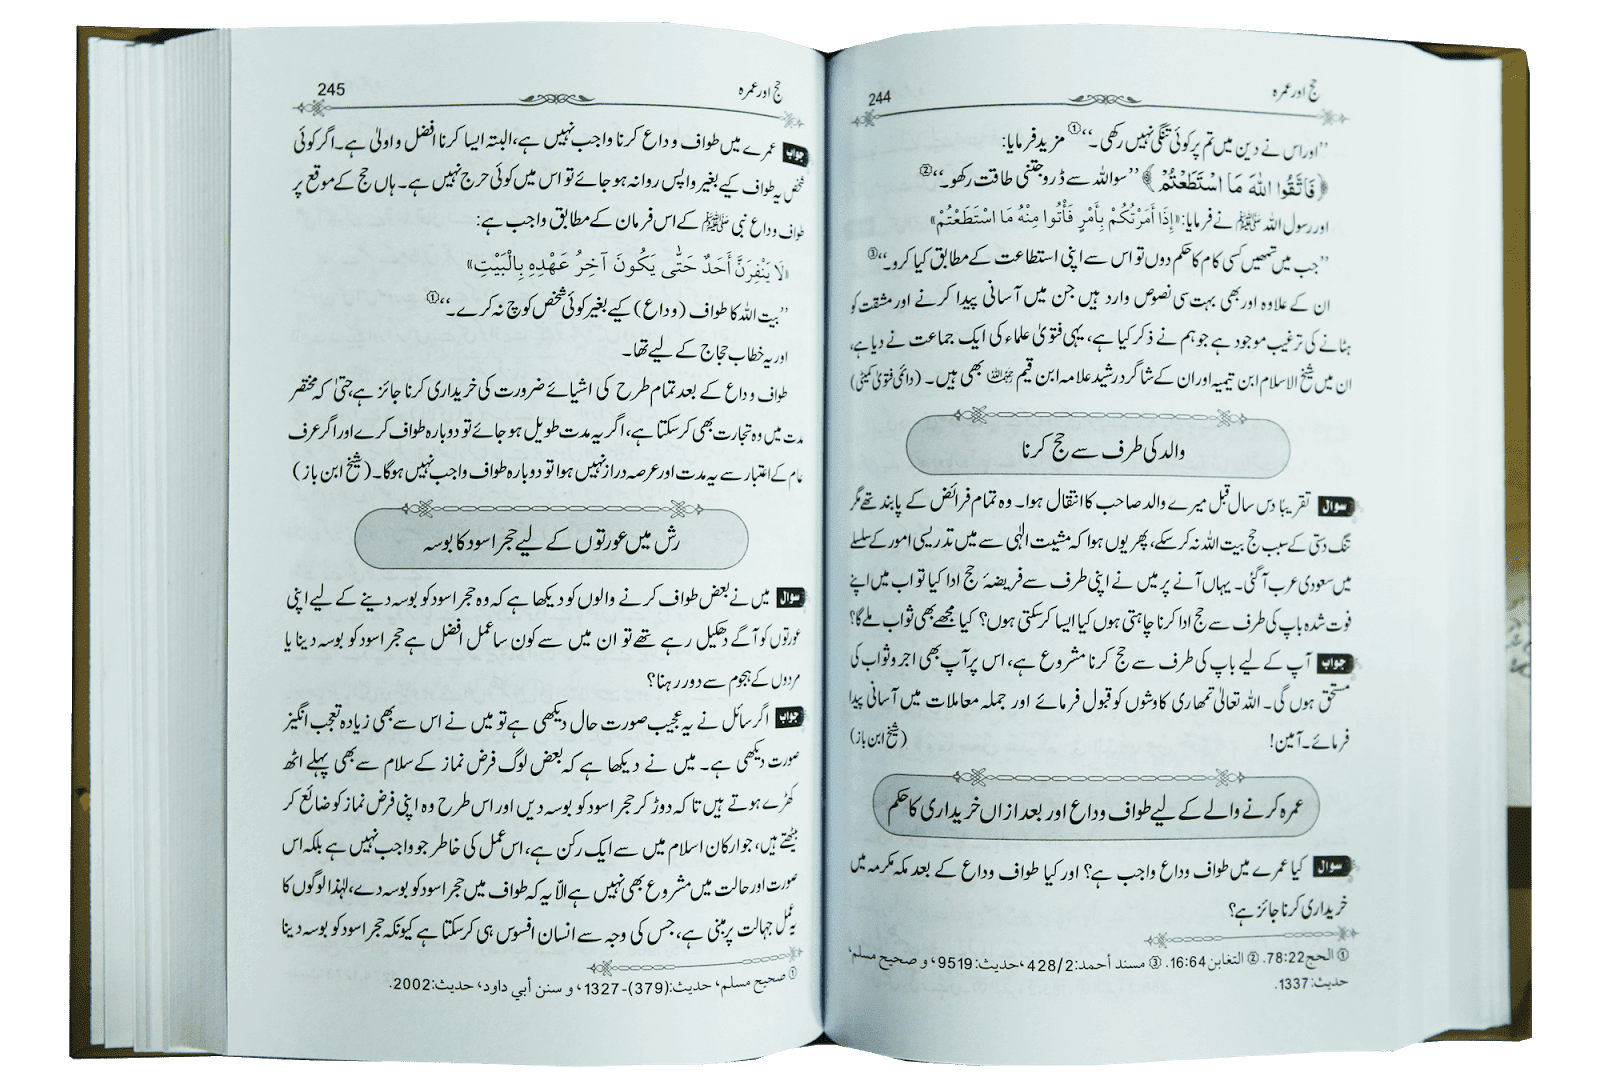 حج اور عمرہ
244
”اور اس نے دین میں تم پر کوئی تنگی نہیں رکھی۔“① مزید فرمایا:
﴿فَاتَّقُوا اللّٰهَ مَا اسْتَطَعْتُمْ﴾ ”سو اللہ سے ڈرو جتنی طاقت رکھو۔“②
اور رسول اللہ ﷺ نے فرمایا: «إِذَا أَمَرْتُكُمْ بِأَمْرٍ فَأْتُوا مِنْهُ مَا اسْتَطَعْتُمْ»
”جب میں تمھیں کسی کام کا حکم دوں تو اس سے اپنی استطاعت کے مطابق کیا کرو۔“③
ان کے علاوہ اور بھی بہت سی نصوص وارد ہیں جن میں آسانی پیدا کرنے اور مشقت کو
ہٹانے کی ترغیب موجود ہے جو ہم نے ذکر کیا ہے، یہی فتویٰ علماء کی ایک جماعت نے دیا ہے،
ان میں شیخ الاسلام ابن تیمیہ اور ان کے شاگرد رشید علامہ ابن قیم رحمہما اللہ بھی ہیں۔ (دائمی فتویٰ کمیٹی)
والد کی طرف سے حج کرنا
سوال تقریباً دس سال قبل میرے والد صاحب کا انتقال ہوا۔ وہ تمام فرائض کے پابند تھے مگر
تنگ دستی کے سبب حج بیت اللہ نہ کر سکے، پھر یوں ہوا کہ مشیت الٰہی سے میں تدریسی امور کے سلسلے
میں سعودی عرب آ گئی۔ یہاں آنے پر میں نے اپنی طرف سے فریضۂ حج ادا کیا تو اب میں اپنے
فوت شدہ باپ کی طرف سے حج ادا کرنا چاہتی ہوں کیا ایسا کر سکتی ہوں؟ کیا مجھے بھی ثواب ملے گا؟
جواب آپ کے لیے باپ کی طرف سے حج کرنا مشروع ہے، اس پر آپ بھی اجر و ثواب کی
مستحق ہوں گی۔ اللہ تعالیٰ تمھاری کاوشوں کو قبول فرمائے اور جملہ معاملات میں آسانی پیدا
فرمائے۔ آمین! (شیخ ابن باز)
عمرہ کرنے والے کے لیے طواف وداع اور بعد ازاں خریداری کا حکم
سوال کیا عمرے میں طواف وداع واجب ہے؟ اور کیا طواف وداع کے بعد مکہ مکرمہ میں
خریداری کرنا جائز ہے؟
① الحج 78:22. ② التغابن 16:64. ③ مسند أحمد: 428/2، حدیث: 9519، و صحیح مسلم،
حدیث: 1337.
حج اور عمرہ
245
جواب عمرے میں طواف وداع کرنا واجب نہیں ہے، البتہ ایسا کرنا افضل و اولیٰ ہے۔ اگر کوئی
شخص یہ طواف کیے بغیر واپس روانہ ہو جائے تو اس میں کوئی حرج نہیں ہے۔ ہاں حج کے موقع پر
طواف وداع نبی ﷺ کے اس فرمان کے مطابق واجب ہے:
«لَا يَنْفِرَنَّ أَحَدٌ حَتّٰى يَكُونَ آخِرُ عَهْدِهِ بِالْبَيْتِ»
”بیت اللہ کا طواف (وداع) کیے بغیر کوئی شخص کوچ نہ کرے۔“①
اور یہ خطاب حجاج کے لیے تھا۔
طواف وداع کے بعد تمام طرح کی اشیائے ضرورت کی خریداری کرنا جائز ہے، حتیٰ کہ مختصر
مدت میں وہ تجارت بھی کر سکتا ہے، اگر یہ مدت طویل ہو جائے تو دوبارہ طواف کرے اور اگر عرف
عام کے اعتبار سے یہ مدت اور عرصہ دراز نہیں ہوا تو دوبارہ طواف واجب نہیں ہوگا۔ (شیخ ابن باز)
رش میں عورتوں کے لیے حجر اسود کا بوسہ
سوال میں نے بعض طواف کرنے والوں کو دیکھا ہے کہ وہ حجر اسود کو بوسہ دینے کے لیے اپنی
عورتوں کو آگے دھکیل رہے تھے تو ان میں سے کون سا عمل افضل ہے حجر اسود کو بوسہ دینا یا
مردوں کے ہجوم سے دور رہنا؟
جواب اگر سائل نے یہ عجیب صورت حال دیکھی ہے تو میں نے اس سے بھی زیادہ تعجب انگیز
صورت دیکھی ہے۔ میں نے دیکھا ہے کہ بعض لوگ فرض نماز کے سلام سے بھی پہلے اٹھ
کھڑے ہوتے ہیں تاکہ دوڑ کر حجر اسود کو بوسہ دیں اور اس طرح وہ اپنی فرض نماز کو ضائع کر
بیٹھتے ہیں، جو ارکان اسلام میں سے ایک رکن ہے، اس عمل کی خاطر جو واجب نہیں ہے بلکہ اس
صورت اور حالت میں مشروع بھی نہیں ہے الاّ یہ کہ طواف میں حجر اسود کو بوسہ دے، لہٰذا لوگوں کا
یہ عمل جہالت پر مبنی ہے، جس کی وجہ سے انسان افسوس ہی کر سکتا ہے کیونکہ حجر اسود کو بوسہ دینا
① صحیح مسلم، حدیث: (379)-1327، و سنن أبي داود، حدیث: 2002.